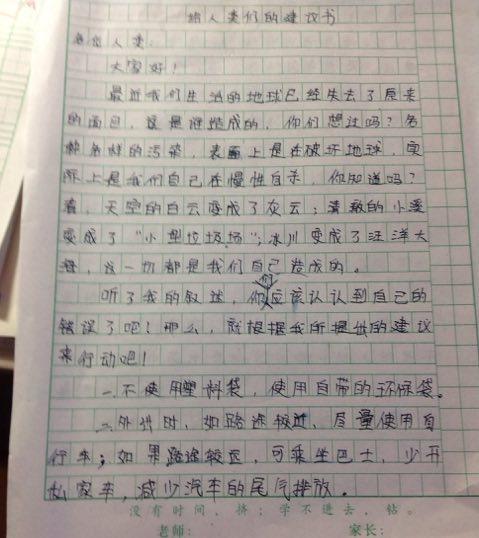 给人类们的建议书
各位人类:
大家好!
最近我们生活的地球已经失去了原来
的面包,这是谁造成的,你们想过吗?各
种各样的污染,表面上是在破坏地球,实
际上是我们自己在慢性自杀,你知道吗?
看,天空的白云变成了灰云;清澈的小溪
变成了“小型垃圾场”;冰川变成了汪洋大
海,这一切都是我们自己造成的。
听了我的叙述,你们应该认认到自己的
错误了吧!那么,就根据我所提出的建议
来行动吧!
一.不使用塑料袋,使用自带的环保袋。
二.外出时,如路途较近,尽量使用自
行车;如果路途较远,可乘坐巴士,少开
私家车,减少汽车的尾气排放。
没有时间,挤;学不进去,钻。
老师: 家长: